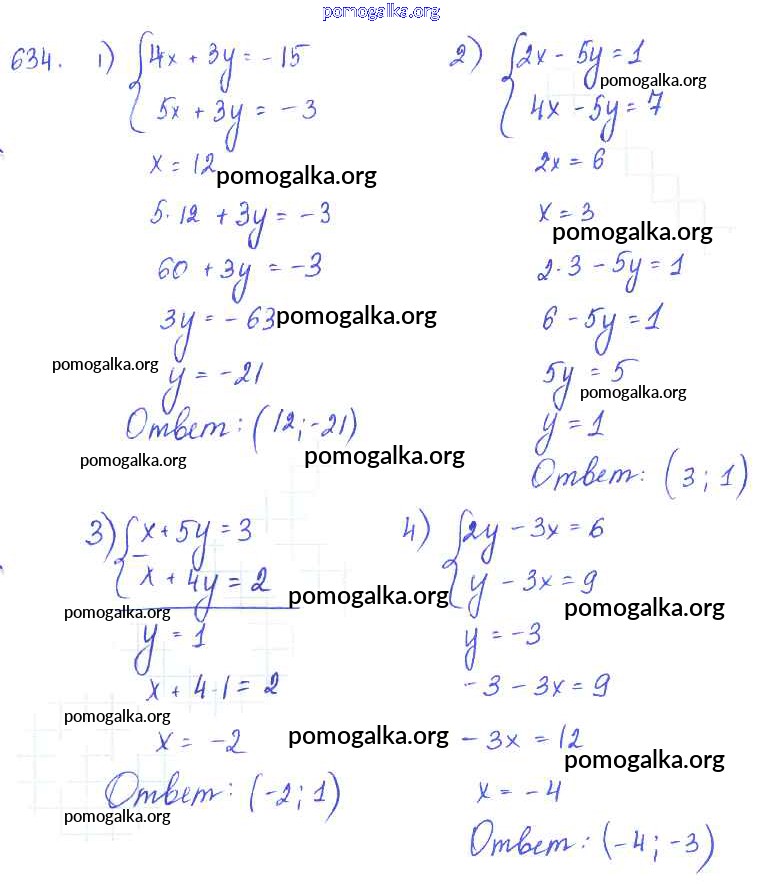 pomogalka.org
634. 1) { 4x + 3y = -15
5x + 3y = -3
x = 12
pomogalka.org
5·12 + 3y = -3
60 + 3y = -3
3y = -63
pomogalka.org
pomogalka.org
y = -21
Ответ: (12; -21)
pomogalka.org
pomogalka.org
2) { 2x - 5y = 1
pomogalka.org
4x - 5y = 7
2x = 6
x = 3
pomogalka.org
2·3 - 5y = 1
6 - 5y = 1
5y = 5
pomogalka.org
y = 1
Ответ: (3; 1)
3) { x + 5y = 3
x + 4y = 2
pomogalka.org
pomogalka.org
y = 1
x + 4·1 = 2
pomogalka.org
x = -2
pomogalka.org
Ответ: (-2; 1)
pomogalka.org
4) { 2y - 3x = 6
y - 3x = 9
pomogalka.org
y = -3
-3 - 3x = 9
-3x = 12
pomogalka.org
x = -4
Ответ: (-4; -3)